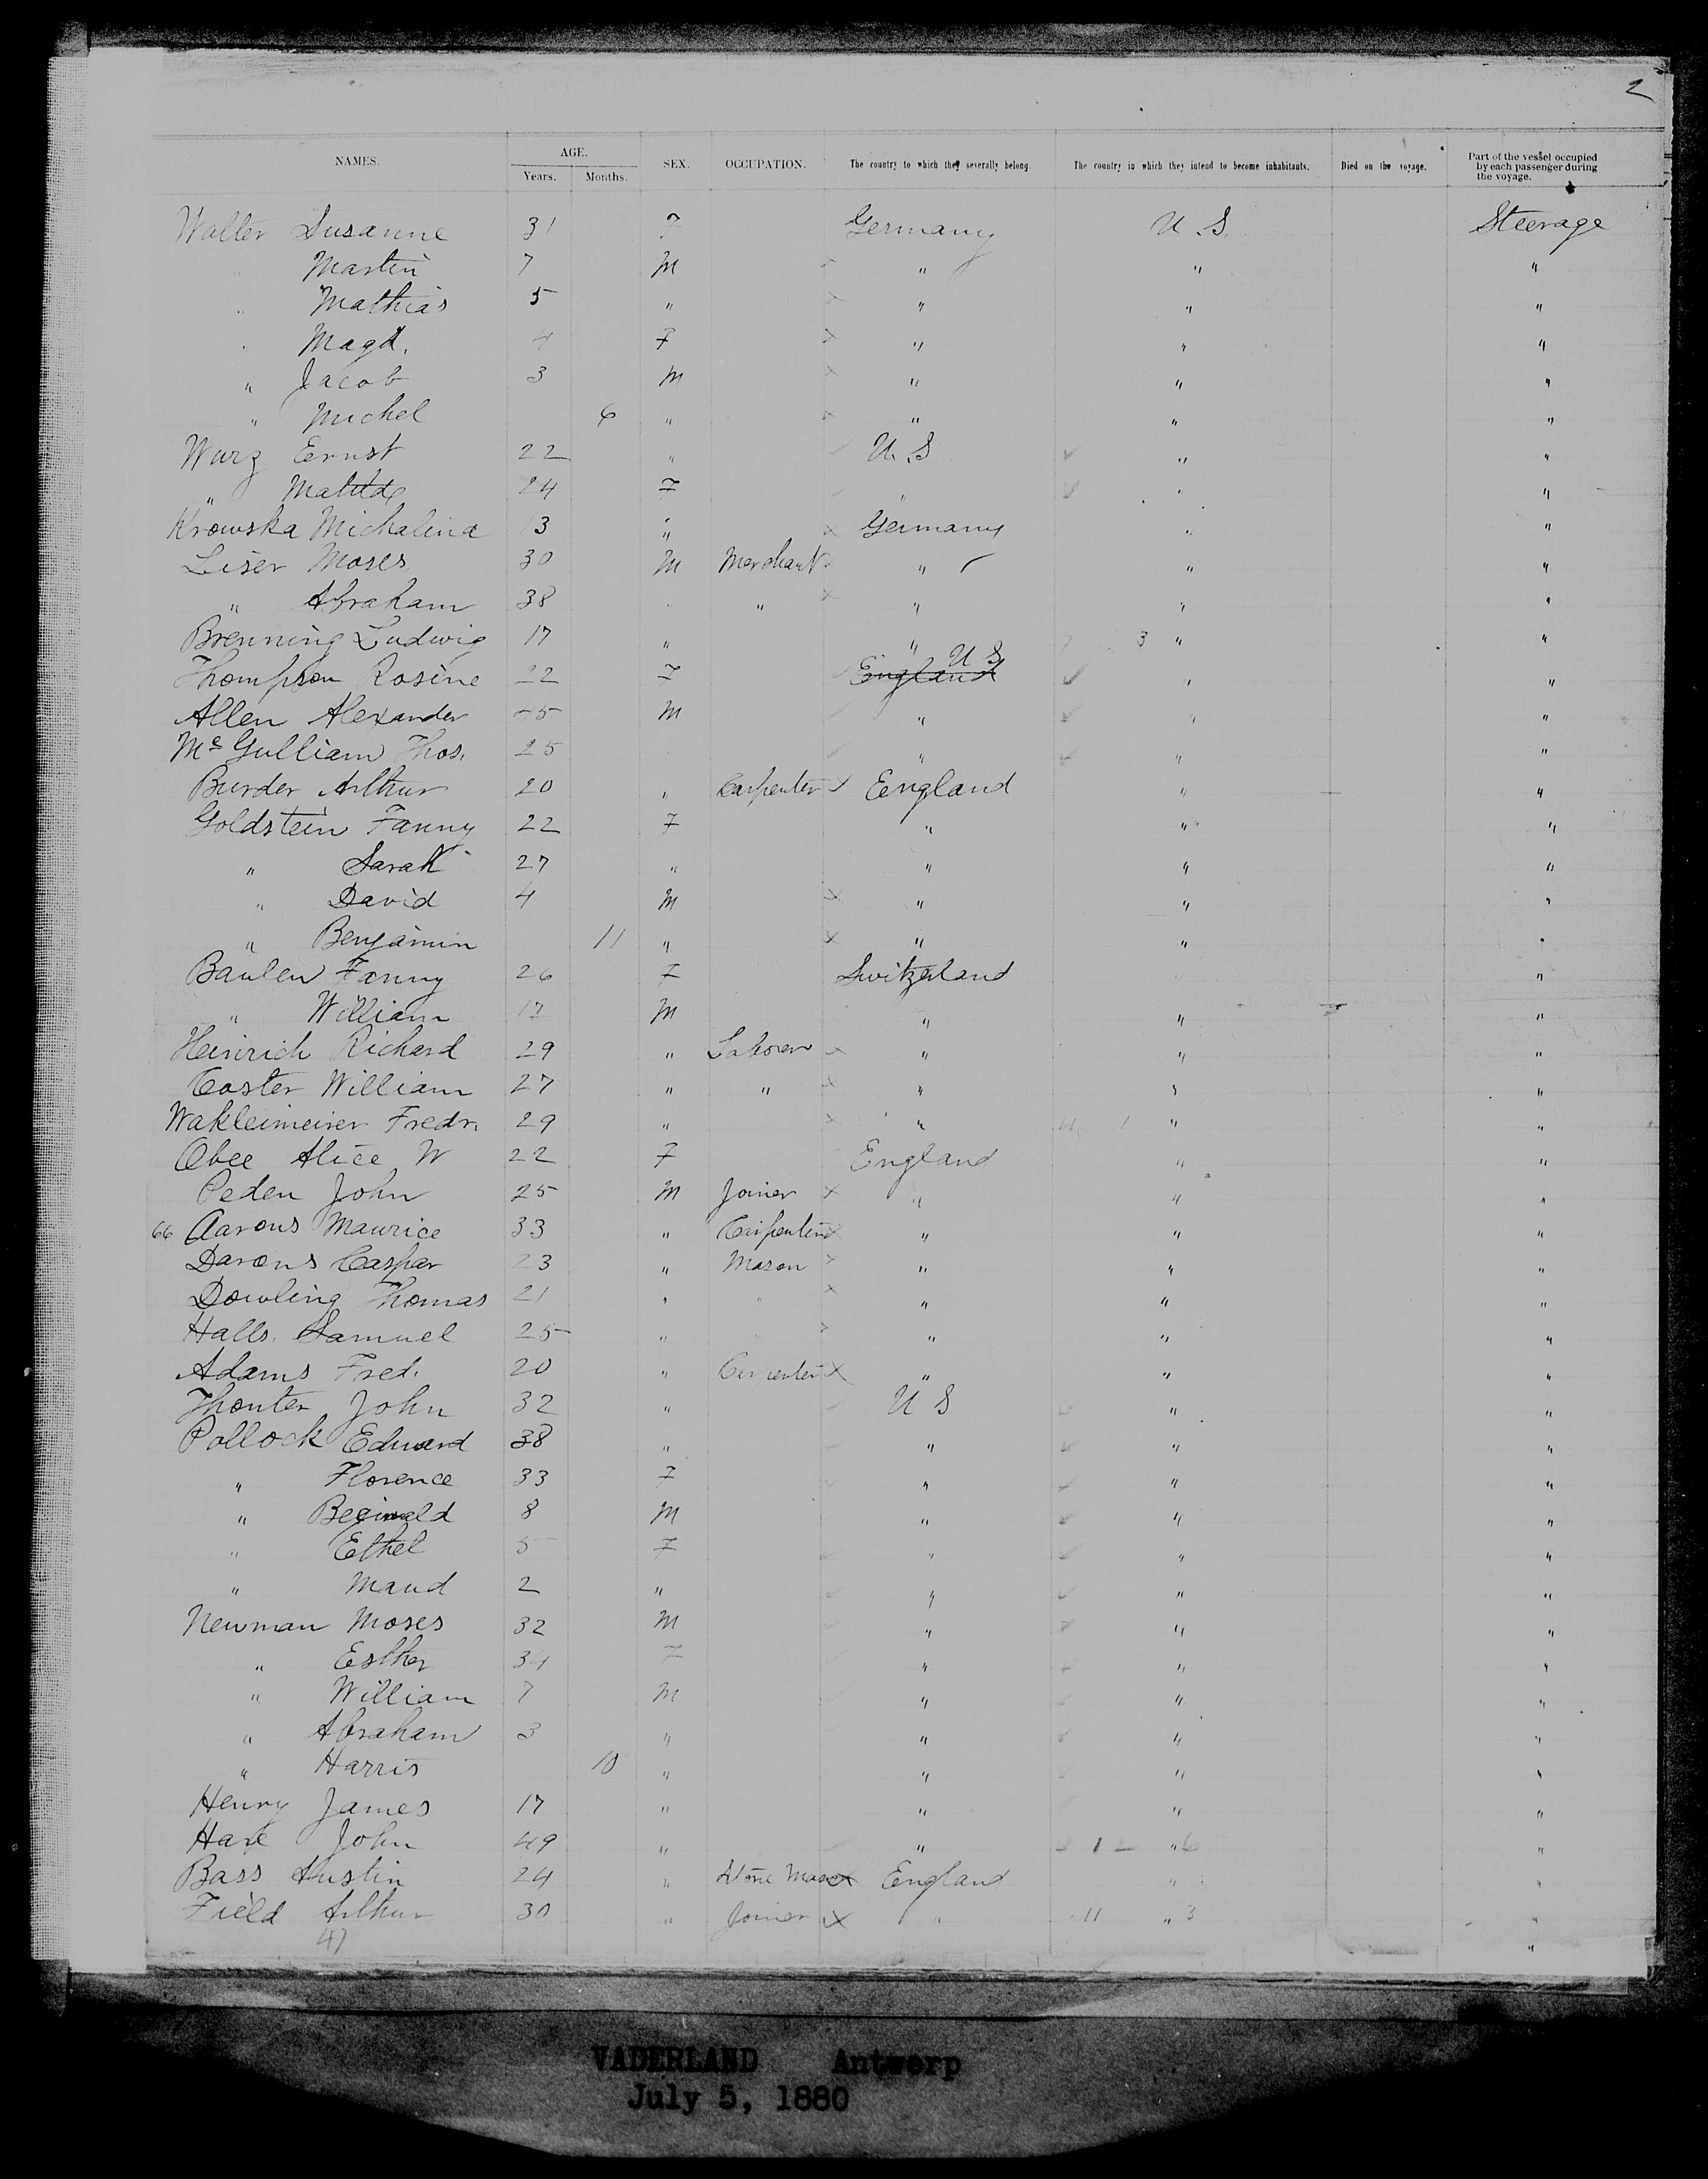 2
NAMES. AGE. SEX. OCCUPATION. The country to which they severally belong. The country in which they intend to become inhabitants. Died on the voyage. Part of the vessel occupied by each passenger during the voyage.
Years. Months.
Walter Susanne 31 F Germany U.S. Steerage
" Martin 7 M " " "
" Mathias 5 " " " "
" Magd. 4 F " " "
" Jacob 3 M " " "
" Michel 6 " " " "
Wurz Ernst 22 " U.S " "
" Matilda 24 F " " "
Krowska Michalina 13 " Germany " "
Liser Moses 30 M Merchant " " "
" Abraham 38 " " " " "
Brenning Ludwig 17 " " 3 " "
Thompson Rosine 22 F England U S " "
Allen Alexander 45 M " " "
Mc Gulliam Thos. 25 " " "
Burder Arthur 20 " Carpenter England " "
Goldstein Fanny 22 F " " "
" Sarah 27 " " " "
" David 4 M " " "
" Benjamin 11 " " " "
Baulen Fanny 26 F Switzerland "
" William 17 M " " "
Heinrich Richard 29 " Laborer " " "
Coster William 27 " " " " "
Wakleimeirer Fredr. 29 " " " "
Obee Alice W 22 F England " "
Peden John 25 M Joiner " " "
66 Aarons Maurice 33 " Carpenter " " "
Darons Caspar 23 " Mason " " "
Dowling Thomas 21 " " " " "
Halls Samuel 25 " " " " "
Adams Fred. 20 " Carpenter " " "
Thonter John 32 " U S " "
Pollock Edward 38 " " " "
" Florence 33 F " " "
" Beginald 8 M " " "
" Ethel 5 F " " "
" Maud 2 " " " "
Newman Moses 32 M " " "
" Esther 34 F " " "
" William 7 M " " "
" Abraham 3 " " " "
" Harris 10 " " " "
Henry James 17 " " " "
Hare John 49 " " 12 " 6 "
Bass Austin 24 " Stone Mason England " "
Field Arthur 30 " Joiner " 11 " 3 "
47 "
VADERLAND Antwerp
July 5, 1880